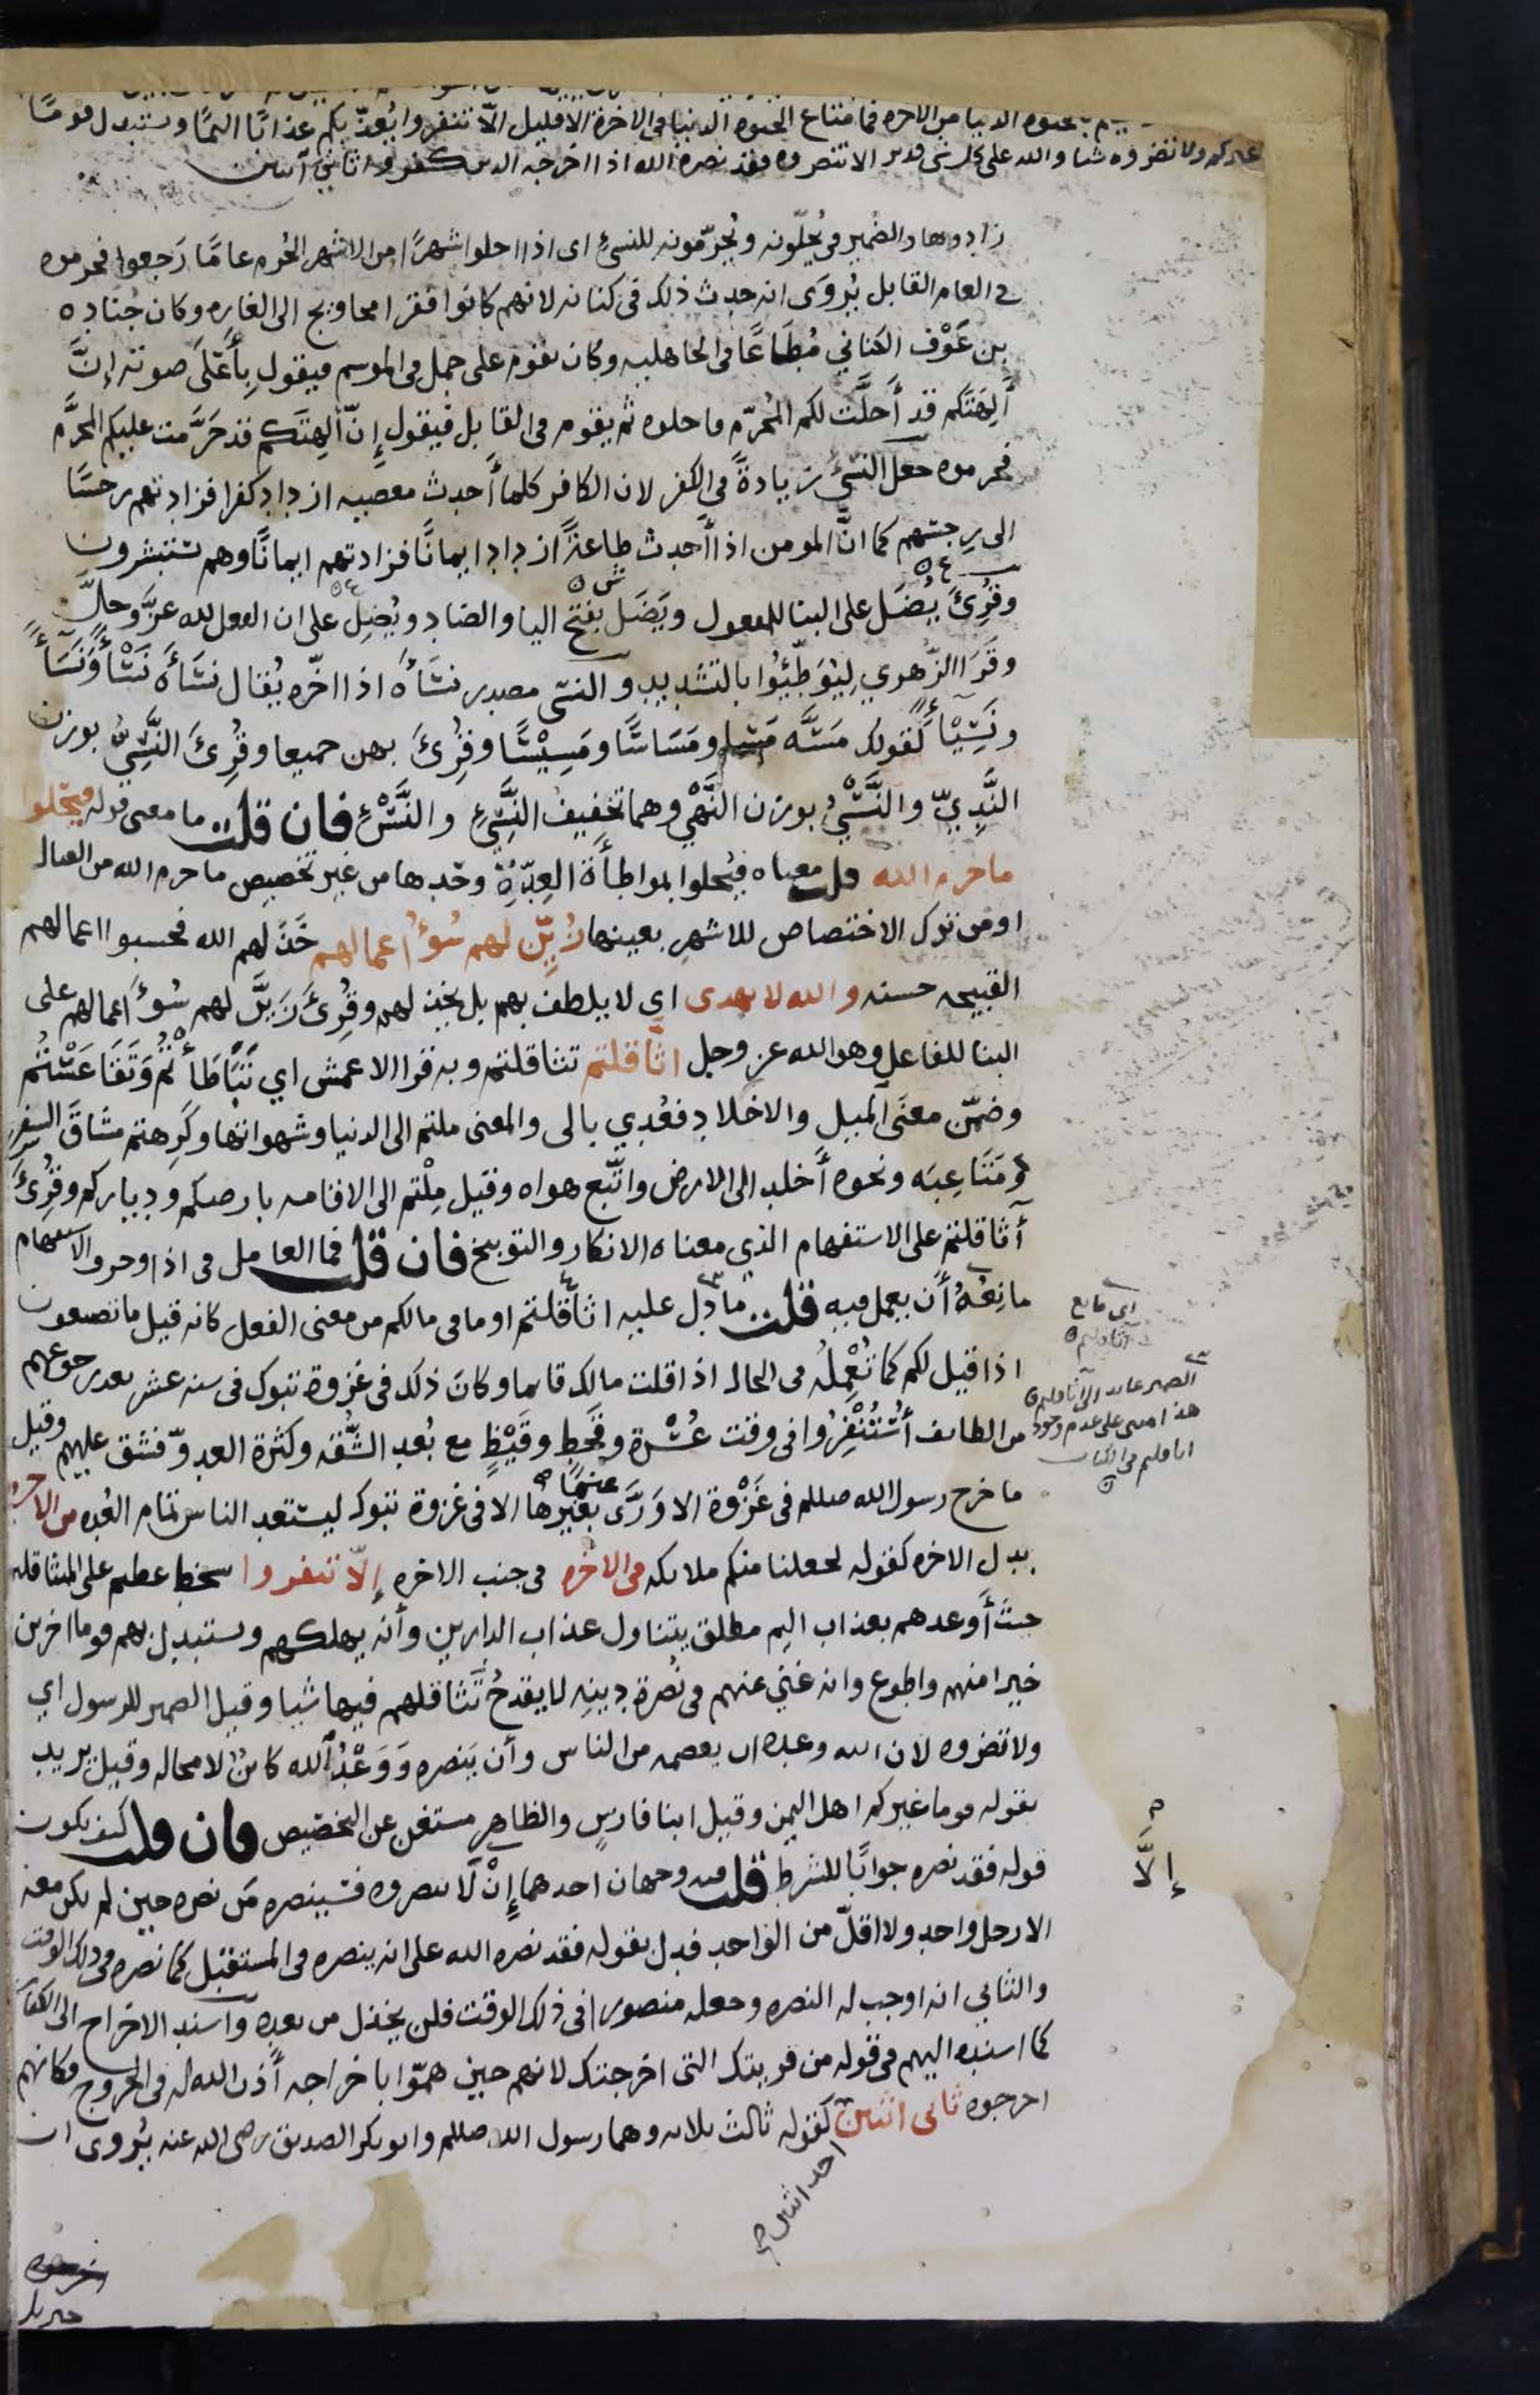 بالحيوه الدنيا من الاخره فما متاع الحيوه الدنيا فى الاخرة الا قليل الّا تنفروا يُعذّبكم عذابًا اليمًا ويستبدل قومًا
غيركم ولا تضروه شيا والله على كل شى قدير الا تنصروه فقد نصره الله اذ اخرجه الذين كفروا ثاني اثنين
زادوها والضمير فى يُحلّونه ويُحرّمونه للنسئ اى اذا احلوا شهرًا من الاشهر الحُرم عامًا رَجعوا فحرموه
فى العام القابل يُروَى انه حدث ذلك فى كنانه لانهم كانوا فقرا محاويج الى الغاره وكان جُناده
بن عَوْف الكناني مُطَاعًا فى الجاهليه وكان يقوم على جمل فى الموسم فيقول بِأَعْلَى صوته إنَّ
أَلِهَتَكم قد أَحلَّت لكم المُحرّم فاحلوه ثم يقوم فى القابل فيقول إنّ ألِهتَكم قد حَرَّمت عليكم المحرَّم
فحرموه جعل النسئ زيادةً فى الكفر لان الكافر كلما أحدث معصيه ازداد كفرا فزادتهم رجسًا
الى رِجسهم كما انَّ المومن اذا أَحدث طاعةً ازداد ايمانًا فزادتهم ايمانًا وهم يستبشرون
وقُرِئَ يُضَل على البنا للمفعول ويَضَل بفتح اليا والضاد ويُضِل على ان الفعل لله عزَّ وجلَّ
وقَرَا الزّهري لِيُوَطِّئُوا بالتشديد والنسى مصدر نسَأَه اذا اخّره يُقال نسَأَه نَسْأً ونَسَأً
ونَسِيْأً كقولك مَسَّه مَسًا ومَسَاسًا ومَسِيْسًا وقُرِئَ بهن جميعا وقُرِئَ النَّسِىُّ بوزن
النَّدِيّ والنَّسْيُ بوزن النَّهْي وهما تخفيف النَّسِيْءِ والنَّسْءِ فان قلت ما معنى قوله فيحلوا
ما حرم الله قلت معناه فيُحلوا بمواطأة العِدّةِ وحدها من غير تخصيص ما حرم الله من القتال
او من ترك الاختصاص للاشهر بعينها زُيّن لهم سُوءُ اعمالهم خَذَلهم الله فحسبوا اعمالهم
القبيحه حسنه والله لا يهدى اى لا يلطف بهم بل يخذلهم وقُرِئَ زَيَّن لهم سُوءَ اعمالهم على
البنا للفاعل وهو الله عز وجل اثّاقلتم تثاقلتم وبه قرا الاعمش اي تَبَاطَأْتُم وَتَقَاعَسْتُم
وضمّن معنَى المَيل والاخلاد فعُدي بالى والمعنى ملتم الى الدنيا وشهواتها وكَرِهتم مشاقَ السفر
وَمَتَاعِبَه ونحوه أَخلد الى الارض واتَّبع هواه وقيل مِلْتم الى الاقامه بارضكم ودياركم وقُرِئَ
أَثاقلتم على الاستفهام الذي معناه الانكار والتوبيخ فان قلت فما العامل فى اذا وحرف الاستفهام
مانِعُهُ أَن يعمل فيه قلت ما دل عليه اثاقلتم او ما فى مالكم من معنى الفعل كانه قيل ما تصنعون
اذا قيل لكم كما تُعْمِلُه فى الحال اذا قلت مالك قايما وكان ذلك فى غزوة تبوك فى سنه عشر بعد رجوعهم
من الطايف أُستُنْفِرُوا فى وقت عُسْرة وقَحطٍ وقَيْظٍ مع بُعد الشُّقه وكثرة العدوّ فشق عليهم وقيل
ما خرج رسول الله صللم فى غَزْوة الا وَرَّى عنها بغيرها الا فى غزوة تبوك ليستعد الناس تمام العُده من الاخرة
بدل الاخره كقوله لجعلنا منكم ملايكه فى الاخره فى جنب الاخره إلّا تنفروا سخط عظيم على المثاقله
حيثَ أَوعدهم بعذاب اليم مطلق يتناول عذاب الدارين وأنه يهلكهم ويستبدل بهم قوما اخرين
خيرا منهم واطوع وانه غني عنهم فى نُصرة دينِه لا يقدحُ تَثاقلهم فيها شيا وقيل الضمير للرسول اي
ولا تضروه لان الله وعده ان يعصمه من الناس وأن يَنصره وَوَعْدُ الله كائنٌ لا محاله وقيل يريد
بقوله قوما غيركم اهل اليمن وقيل ابنا فارسٍ والظاهر مستغن عن التخصيص فان قلت كيف يكون
قوله فقد نصره جوابًا للشرط قلت فيه وجهان احدهما إنْ لَا تنصروه فسينصره مَن نصره حين لم يكن معه
الا رجل واحد ولا اقلّ من الواحد فدل بقوله فقد نصره الله على انه ينصره فى المستقبل كما نصره فى ذلك الوقت
والثاني انه اوجب له النصره وجعله منصورا فى ذلك الوقت فلن يخذل من بعده واسند الاخراج الى الكفار
كما اسنده اليهم فى قوله من قريتك التى اخرجتك لانهم حين همّوا باخراجه أَذن الله له فى الخروج فكانهم
اخرجوه ثانى اثنين كقوله ثالث ثلاثه وهما رسول الله صللم وابو بكر الصديق رضى الله عنه يُروى ان
احد اثنين
اى مانع
الضمير عايد الى اثاقلتم
هذا مبنى على عدم وجود
اثاقلتم فى الكتاب
إلَّا
جبريل